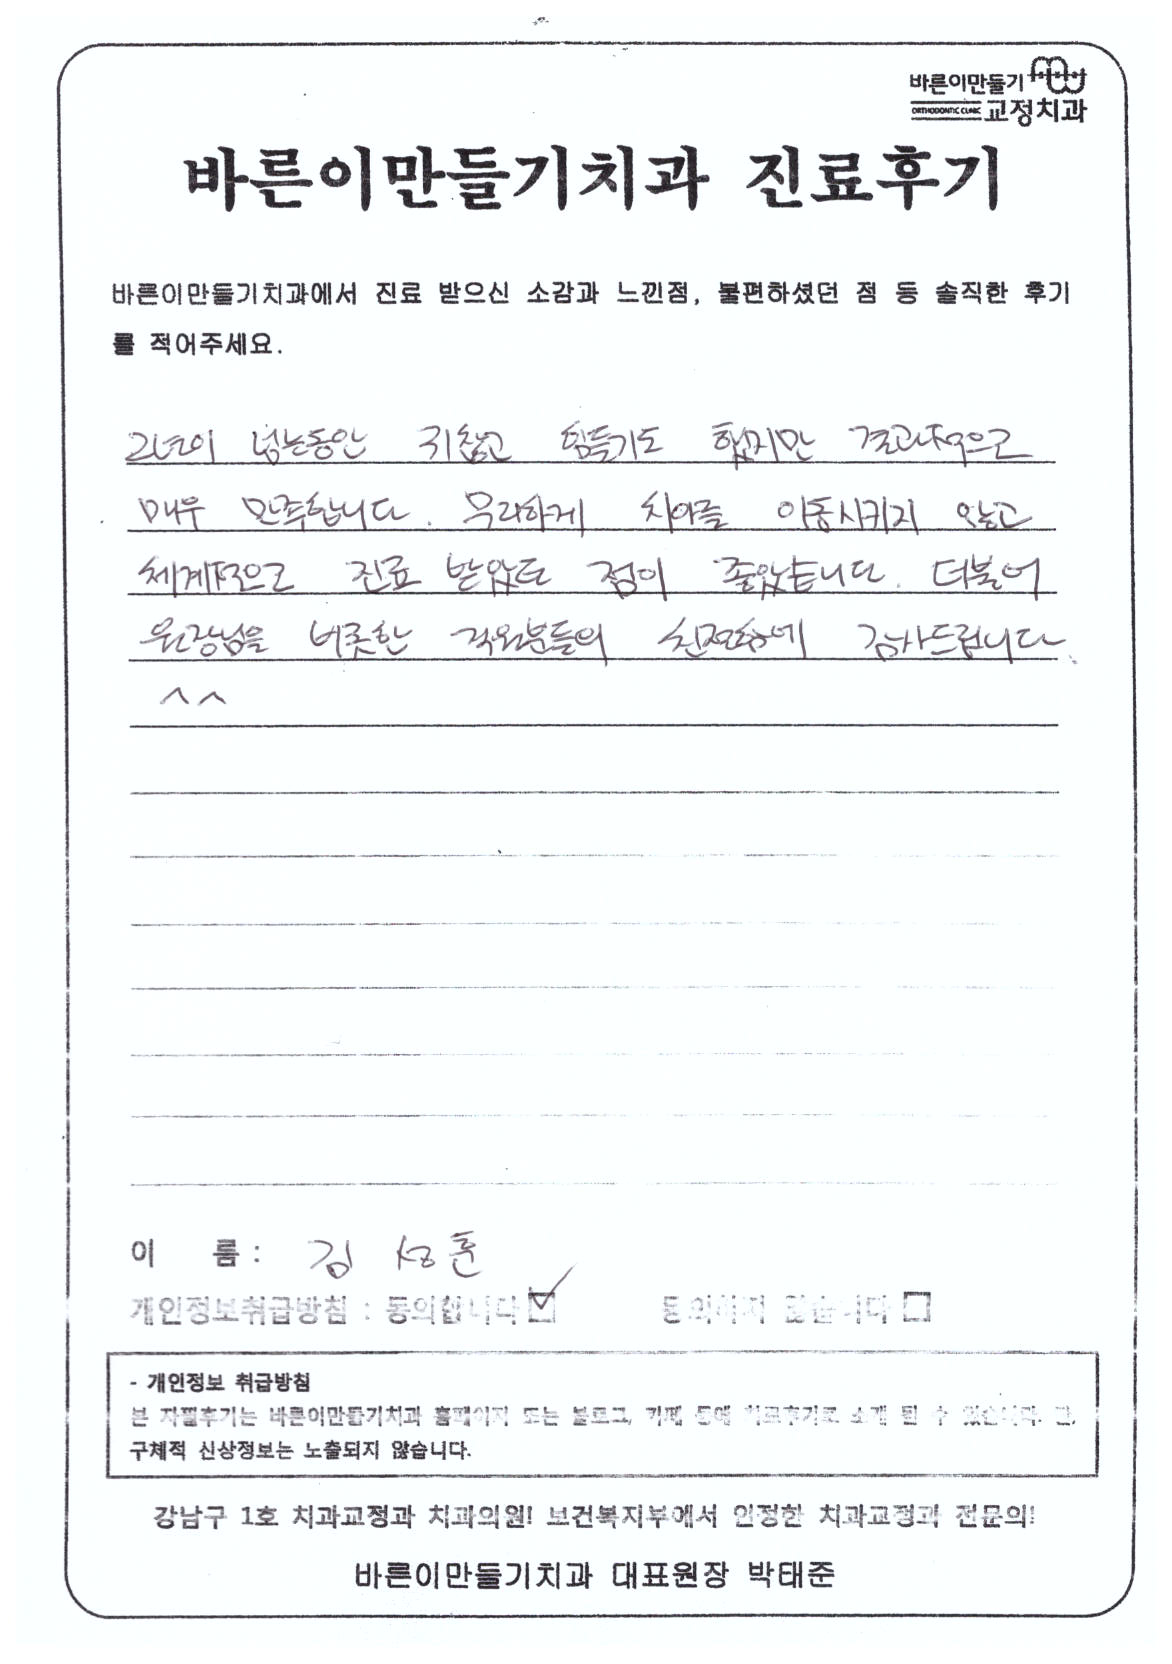 바른이만들기
ORTHODONTIC CLINIC 교정치과
바른이만들기치과 진료후기
바른이만들기치과에서 진료 받으신 소감과 느낀점, 불편하셨던 점 등 솔직한 후기
를 적어주세요.
2년이 넘는동안 귀찮고 힘들기도 했지만 결과적으로
매우 만족합니다. 무리하게 치아를 이동시키지 않고
체계적으로 진료 받았던 점이 좋았습니다. 더불어
원장님을 비롯한 직원분들의 친절함에 감사드립니다.
^^
이 름 : 김 성훈
개인정보취급방침 : 동의합니다 동의하지 않습니다
- 개인정보 취급방침
본 자필후기는 바른이만들기치과 홈페이지 또는 블로그, 카페 등에 치료후기로 소개 될 수 있습니다. 단,
구체적 신상정보는 노출되지 않습니다.
강남구 1호 치과교정과 치과의원! 보건복지부에서 인정한 치과교정과 전문의!
바른이만들기치과 대표원장 박태준